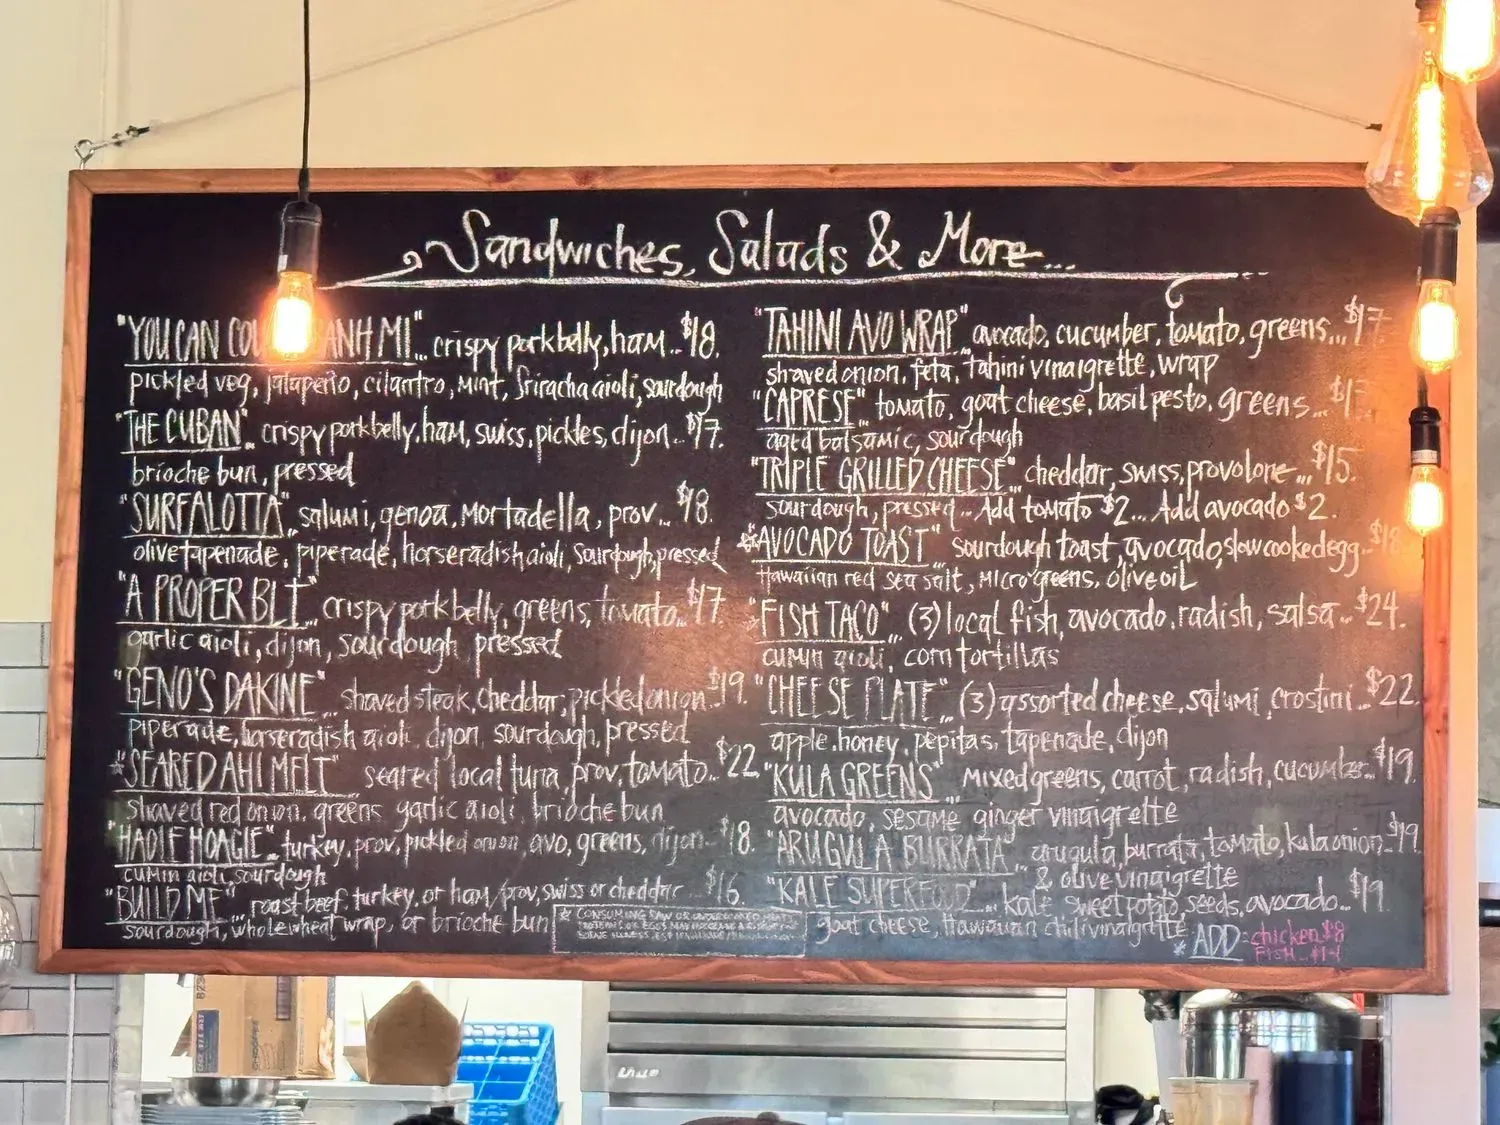 Sandwiches, Salads & More...
"YOU CAN BANH MI"... crispy porkbelly, ham... $18.
pickled veg, jalapeño, cilantro, mint, Sriracha aioli, sourdough
"THE CUBAN"... crispy porkbelly, ham, swiss, pickles, dijon... $17.
brioche bun, pressed
"SURFALOTTA"... salumi, genoa, mortadella, prov... $18.
olive tapenade, piperade, horseradish aioli, sourdough, pressed
"A PROPER BLT"... crispy porkbelly, greens, tomato... $17.
garlic aioli, dijon, sourdough, pressed
"GENO'S DAKINE"... shaved steak, cheddar, pickled onion... $19.
piperade, horseradish aioli, dijon, sourdough, pressed
*"SEARED AHI MELT" seared local tuna, prov, tomato... $22
shaved red onion, greens garlic aioli, brioche bun
"HAOLE HOAGIE"... turkey, prov, pickled onion, avo, greens, dijon... $18.
cumin aioli, sourdough
"BUILD ME"... roast beef, turkey, or ham / prov, swiss or cheddar... $16.
sourdough, whole wheat wrap, or brioche bun
* CONSUMING RAW OR UNDERCOOKED MEATS,
"TAHINI AVO WRAP"... avocado, cucumber, tomato, greens... $17
shaved onion, feta, tahini vinaigrette, wrap
"CAPRESE"... tomato, goat cheese, basil pesto, greens...
aged balsamic, sourdough
"TRIPLE GRILLED CHEESE"... cheddar, swiss, provolone... $15.
sourdough, pressed... Add tomato $2... Add avocado $2.
*"AVOCADO TOAST"... sourdough toast, avocado, slow cooked egg... $18
Hawaiian red sea salt, microgreens, olive oil
"FISH TACO"... (3) local fish, avocado, radish, salsa... $24.
cumin aioli, corn tortillas
"CHEESE PLATE"... (3) assorted cheese, salumi, crostini... $22.
apple, honey, pepitas, tapenade, dijon
"KULA GREENS"... mixed greens, carrot, radish, cucumber... $19.
avocado, sesame ginger vinaigrette
"ARUGULA BURRATA"... arugula, burrata, tomato, kula onion... $19.
& olive vinaigrette
"KALE SUPERFOOD"... kale, sweet potato, seeds, avocado... $19.
goat cheese, Hawaiian chili vinaigrette
* ADD: chicken $8
FISH...